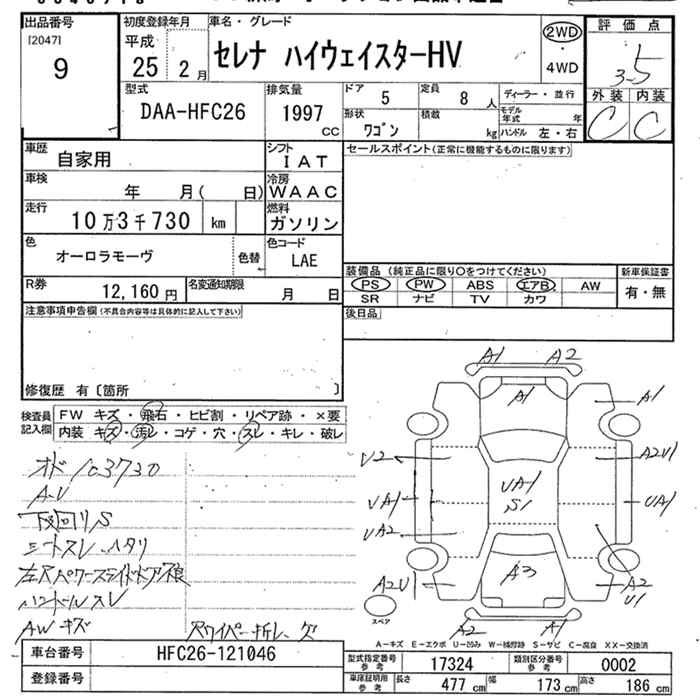 出品番号
[2047]
9
初度登録年月
平成
25 2 月
車名・グレード
セレナ ハイウェイスターHV
2WD
・
4WD
評価点
3-5
外装 内装
C C
型式
DAA-HFC26
排気量
1997
CC
ドア
5
定員
8 人
形状
ワゴン
積載
kg
ディーラー・並行
モデル年式 年
ハンドル 左・右
車歴
自家用
シフト
IAT
セールスポイント(正常に機能するものに限ります)
車検
年 月( 日)
冷房
WAAC
走行
10万3千730 km
燃料
ガソリン
色
オーロラモーヴ
色替
色コード
LAE
R券
12,160 円
名変通知期限
月 日
装備品 (純正品に限り○をつけてください)
PS PW ABS エアB AW
SR ナビ TV カワ
新車保証書
有・無
注意事項申告欄(不具合内容等は具体的に記入して下さい)
後日品
修復歴 有〔箇所 〕
検査員記入欄
FW キズ・飛石・ヒビ割・リペア跡・×要
内装 キズ・汚レ・コゲ・穴・スレ・キレ・破レ
オド103730
A-U
下回りS
シートスレ、ヘタリ
左Rパワースライドドア不良
ハンドルスレ
AWキズ
Rワイパー折レ、欠
A1 A2
A1
A1
U2
A2U1
UA1
UA1
S1
UA1
UA2
A3
A2U1
A2
U1
A2 A1
スペア
A-キズ E-エクボ U-凹み W-補修跡 S-サビ C-腐食 XX-交換済
車台番号
HFC26-121046
登録番号
型式指定番号 参考
17324
類別区分番号 参考
0002
車庫証明用 参考
長さ 477 cm
幅 173 cm
高さ 186 cm